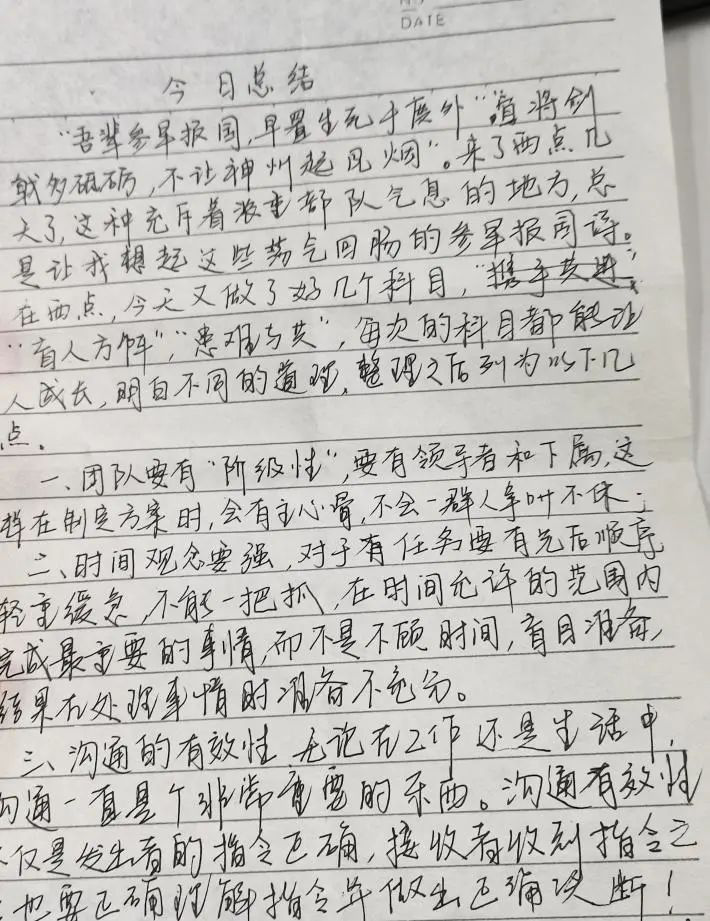 DATE
今日总结
"吾辈参军报国,早置生死于度外""直将剑
戟多砥砺,不让神州起风烟"。来了西点几
天了,这种充斥着浓重部队气息的地方,总
是让我想起这些荡气回肠的参军报国诗。
在西点,今天又做了好几个科目,"携手共进"
"盲人方阵","患难与共",每次的科目都能让
人成长,明白不同的道理,整理之后列为以下几
点。
一、团队要有"阶级性",要有领导者和下属,这
样在制定方案时,会有主心骨,不会一群人争吵不休;
二、时间观念要强,对于有任务要有先后顺序
轻重缓急,不能一把抓,在时间允许的范围内
完成最重要的事情,而不是不顾时间,盲目准备,
结果在处理事情时准备不充分。
三、沟通的有效性,无论在工作还是生活中,
沟通一直是个非常重要的东西。沟通有效性
仅是发出者的指令正确,接收者收到指令之
也要正确理解指令并做出正确决断!